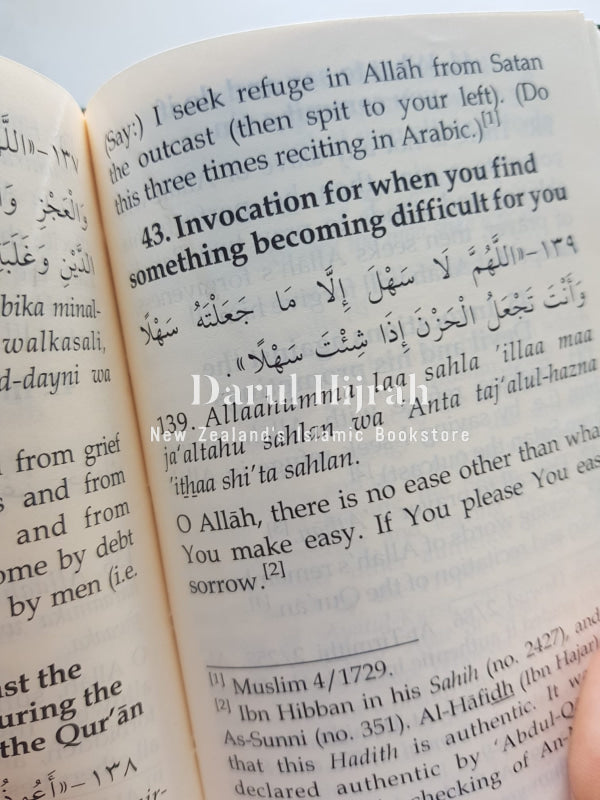 ١٣٧–«اللَّ
وَالْعَجْزِ وَا
الدَّيْنِ وَغَلَبَ
bika minal-
walkasali,
d-dayni wa
from grief
and from
and from
ome by debt
by men (i.e.
st the
uring the
the Qur'ān
١٣٨–«أَعُوذُ
(Say:) I seek refuge in Allāh from Satan
the outcast (then spit to your left). (Do
this three times reciting in Arabic.)[1]
43. Invocation for when you find
something becoming difficult for you
١٣٩–«اللَّهُمَّ لَا سَهْلَ إِلَّا مَا جَعَلْتَهُ سَهْلًا
وَأَنْتَ تَجْعَلُ الْحَزْنَ إِذَا شِئْتَ سَهْلًا».
139. Allaahumma laa sahla 'illaa maa
ja'altahu sahlan wa 'Anta taj'alul-hazna
'ithaa shi'ta sahlan.
O Allāh, there is no ease other than wha
You make easy. If You please You eas
sorrow.[2]
[1] Muslim 4/1729.
[2] Ibn Hibban in his Sahih (no. 2427), and
As-Sunni (no. 351). Al-Hāfidh (Ibn Hajar)
that this Hadith is authentic. It w
declared authentic by 'Abdul-Q
checking of An-N
Darul Hijrah
New Zealand's Islamic Bookstore